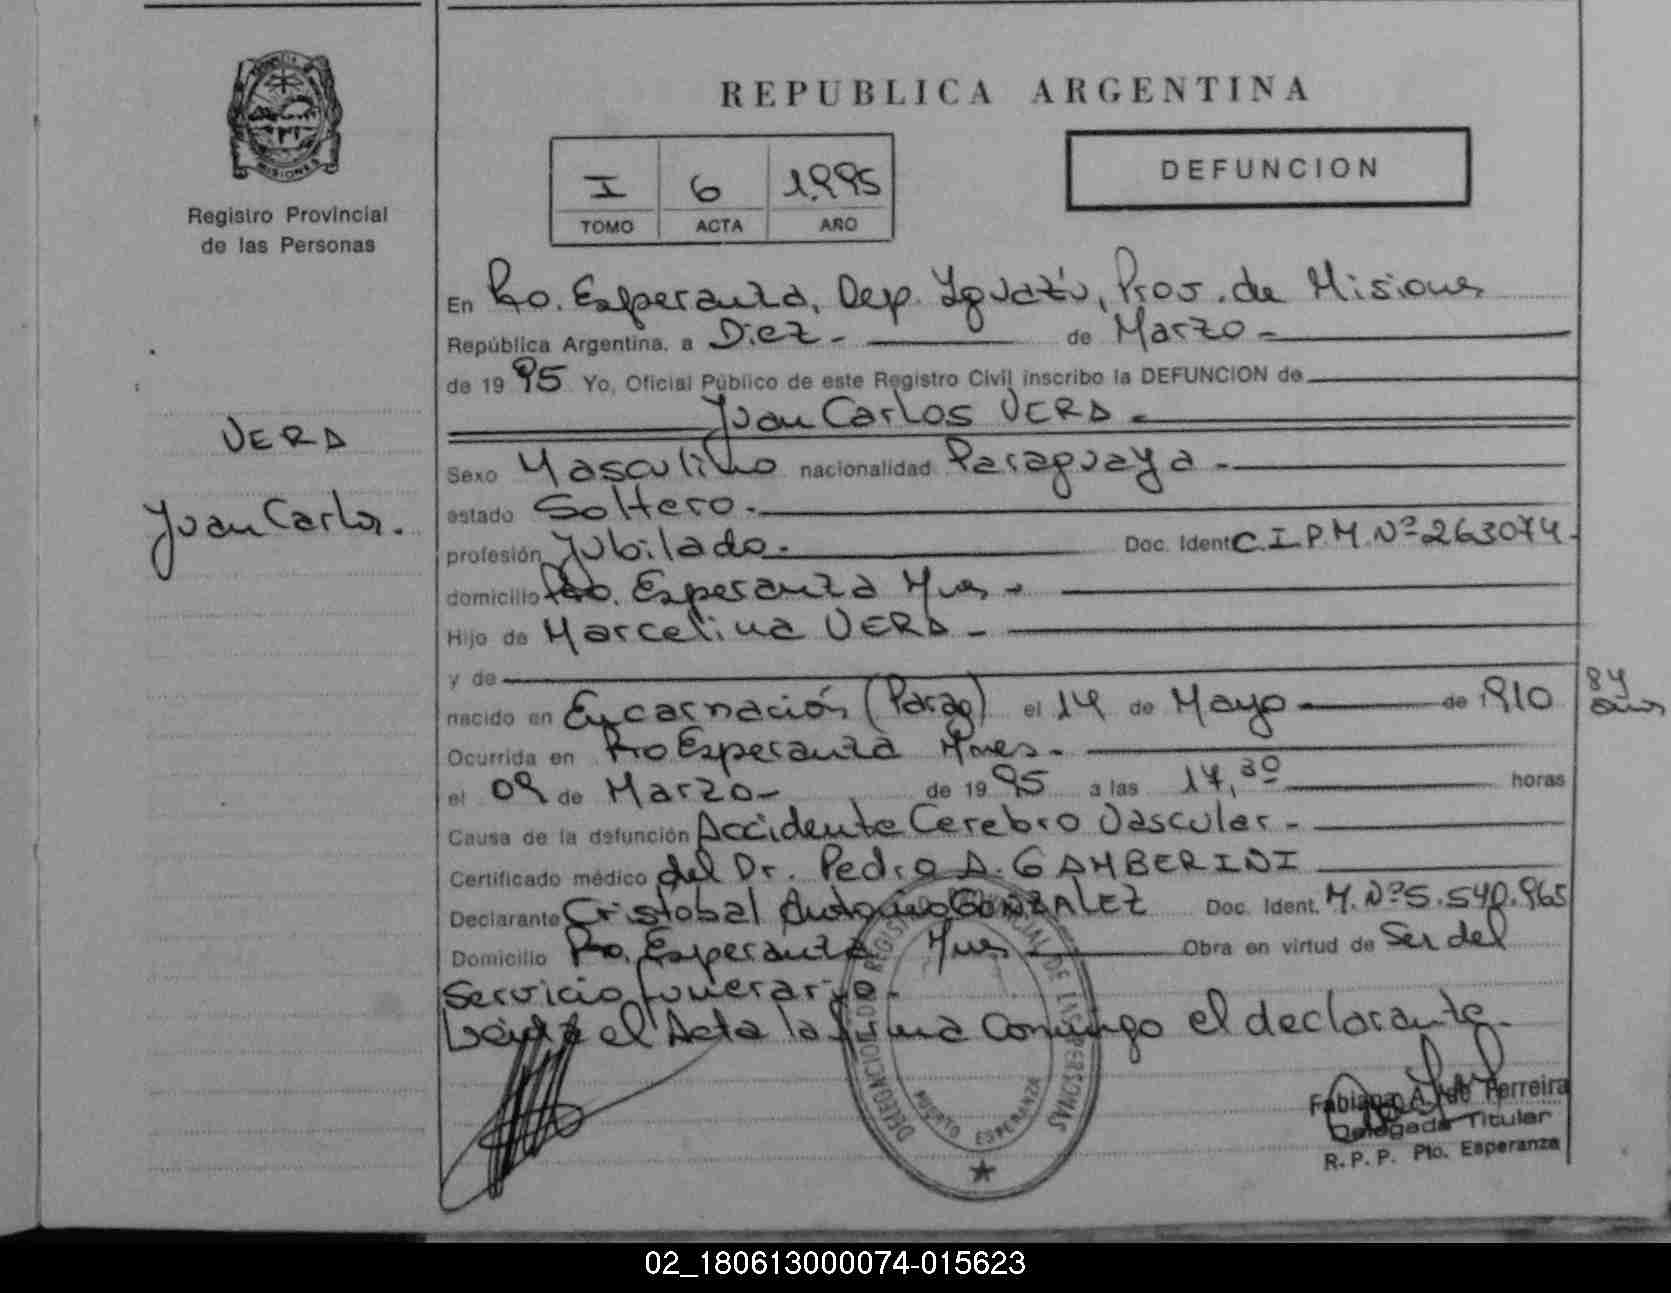 REPUBLICA ARGENTINA
MISIONES
Registro Provincial
de las Personas
DEFUNCION
I 6 1995
TOMO ACTA AÑO
En Pto. Esperanza, Dep. Iguazú, Prov. de Misiones
República Argentina, a Diez - de Marzo -
de 1995 Yo, Oficial Público de este Registro Civil inscribo la DEFUNCION de
Juan Carlos VERA -
VERA
Juan Carlos.
Sexo Masculino nacionalidad Paraguaya -
estado Soltero. -
profesión Jubilado. - Doc. Ident. C.I.P.M. Nº 263074.
domicilio Pto. Esperanza Mnes -
Hijo de Marcelina VERA -
y de
nacido en Encarnación (Parag) el 14 de Mayo de 1910 84 años
Ocurrida en Pto Esperanza Mnes. -
el 09 de Marzo - de 1995 a las 17,30 horas
Causa de la defunción Accidente Cerebro Vascular -
Certificado médico del Dr. Pedro A. GAMBERINI
Declarante Cristobal Antonio GONZALEZ Doc. Ident. M. Nº 5.540.965
Domicilio Pto. Esperanza Mnes Obra en virtud de Ser del
Servicio funerario.
Leída el Acta la firma conmigo el declarante.
DELEGACION DEL REGISTRO PROVINCIAL DE LAS PERSONAS
PUERTO ESPERANZA
Ferreira
Delegada Titular
R. P. P. Pto. Esperanza
02_180613000074-015623